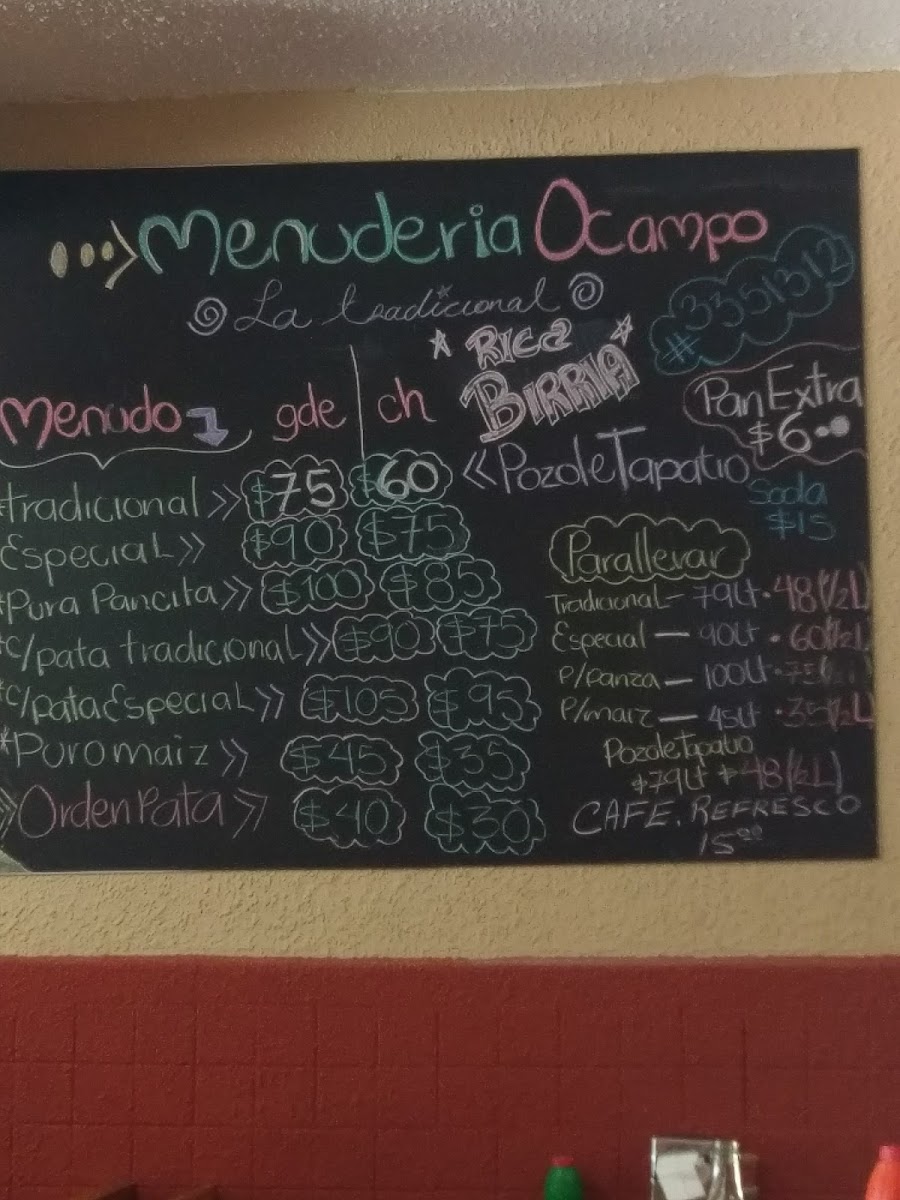 Menuderia Ocampo
La tradicional
#3351312
Rica
BIRRIA
Pan Extra
$6.00
Menudo gde ch
<Pozole Tapatio
Soda
$15
*tradicional >> $75 $60
Especial >> $90 $75
*Pura Pancita >> $100 $85
*c/pata tradicional >> $90 $75
*c/pata Especial >> $105 $95
*Puro maiz >> $45 $35
>> Orden Pata >> $40 $30
Para llevar
Tradicional — 79Lt • 48(½L)
Especial — 90Lt • 60(½L)
P/panza — 100Lt • 75(½L)
P/maiz — 45Lt • 35(½L)
Pozole Tapatio
$79Lt + 48(½L)
CAFE. REFRESCO
15⁰⁰